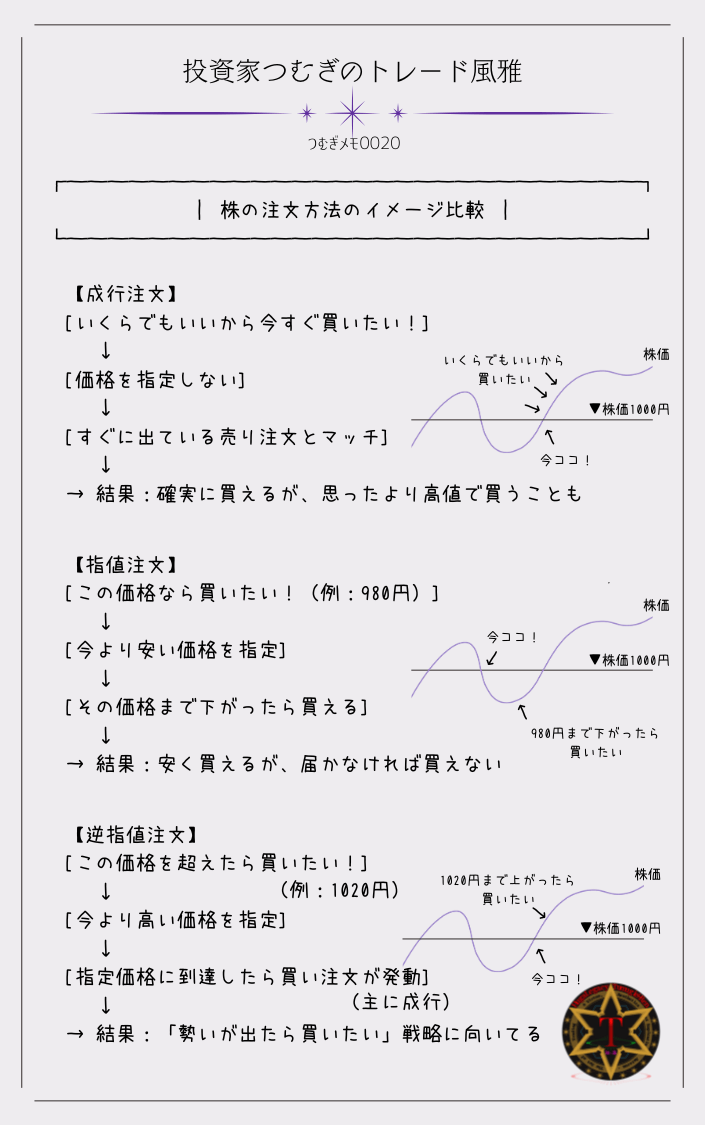 投資家つむぎのトレード風雅
つむぎメモ0020
| 株の注文方法のイメージ比較 |
【成行注文】
[いくらでもいいから今すぐ買いたい！]
↓
[価格を指定しない]
↓
[すぐに出ている売り注文とマッチ]
↓
→ 結果：確実に買えるが、思ったより高値で買うことも
いくらでもいいから
買いたい
株価
▼株価1000円
今ココ！
【指値注文】
[この価格なら買いたい！（例：980円）]
↓
[今より安い価格を指定]
↓
[その価格まで下がったら買える]
↓
→ 結果：安く買えるが、届かなければ買えない
株価
今ココ！
▼株価1000円
980円まで下がったら
買いたい
【逆指値注文】
[この価格を超えたら買いたい！]
↓ （例：1020円）
[今より高い価格を指定]
↓
[指定価格に到達したら買い注文が発動]
↓ （主に成行）
→ 結果：「勢いが出たら買いたい」戦略に向いてる
株価
1020円まで上がったら
買いたい
▼株価1000円
今ココ！
T